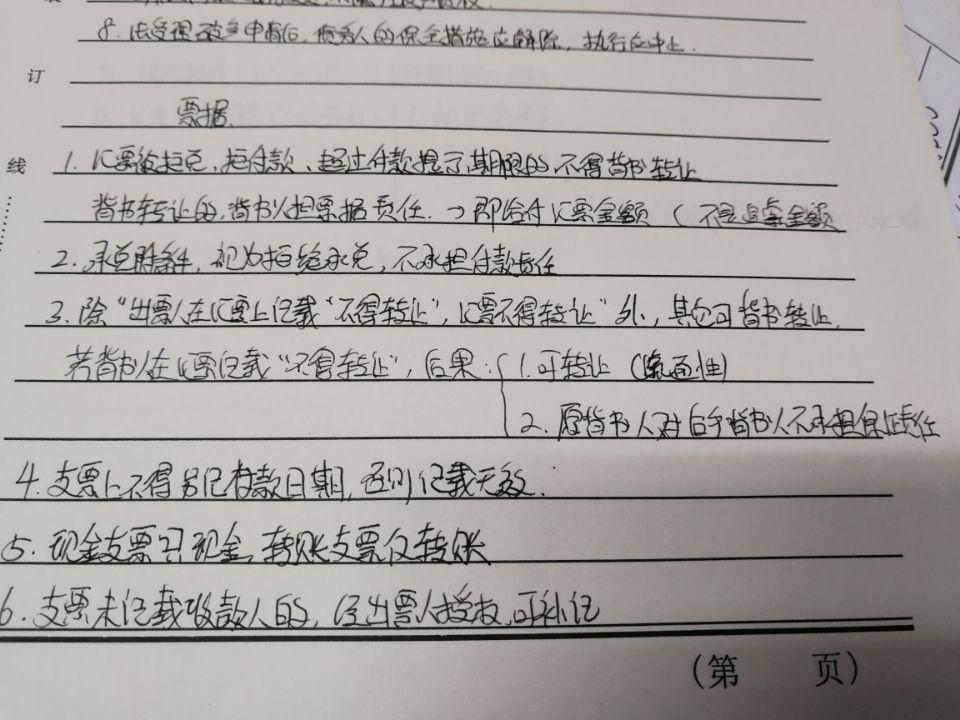 8. 法受理破产申请后，债务人的保全措施应解除，执行应中止.
订
票据.
线
1. 汇票被拒兑、拒付款、超过付款提示期限的，不得背书转让
背书转让的，背书人担票据责任. → 即给付汇票金额（不是追索金额
2. 承兑附条件，视为拒绝承兑，不承担付款责任
3. 除“出票人在汇票上记载“不得转让”，汇票不得转让”外，其它可背书转让.
若背书人在汇票记载“不得转让”，后果：1. 可转让（流通性）
2. 原背书人对后手背书人不承担保证责任
4. 支票上不得另记付款日期，否则记载无效.
5. 现金支票只现金，转账支票仅转账
6. 支票未记载收款人的，经出票人授权，可补记
（第 页）